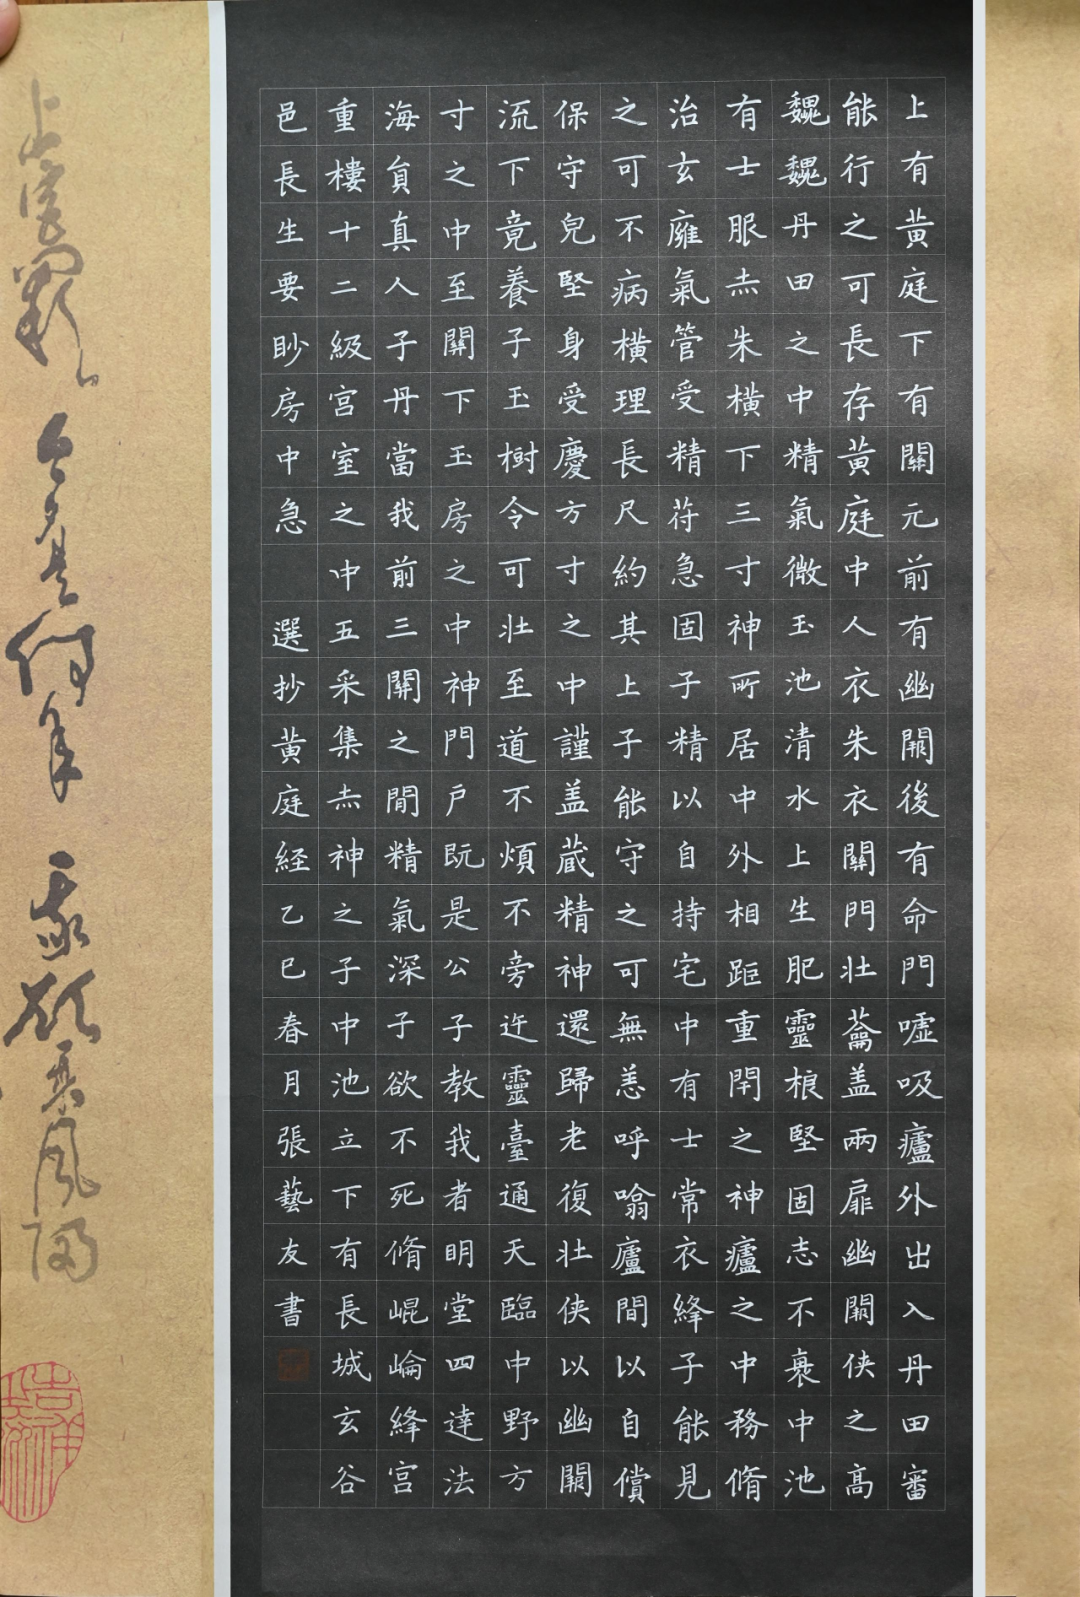 上有黃庭下有關元前有幽闕後有命門噓吸廬外出入丹田審
能行之可長存黃庭中人衣朱衣關門壯蘥盖兩扉幽闕俠之高
魏魏丹田之中精氣微玉池清水上生肥靈根堅固志不衰中池
有士服赤朱橫下三寸神所居中外相距重閇之神廬之中務脩
治玄廱氣管受精苻急固子精以自持宅中有士常衣絳子能見
之可不病橫理長尺約其上子能守之可無恙呼噏廬間以自償
保守皃堅身受慶方寸之中謹盖藏精神還歸老復壯俠以幽闕
流下竟養子玉樹令可壯至道不煩不旁迕靈臺通天臨中野方
寸之中至關下玉房之中神門戶既是公子教我者明堂四達法
海員真人子丹當我前三關之間精氣深子欲不死脩崐崘絳宮
重樓十二級宮室之中五采集赤神之子中池立下有長城玄谷
邑長生要眇房中急 選抄黃庭経乙巳春月張藝友書